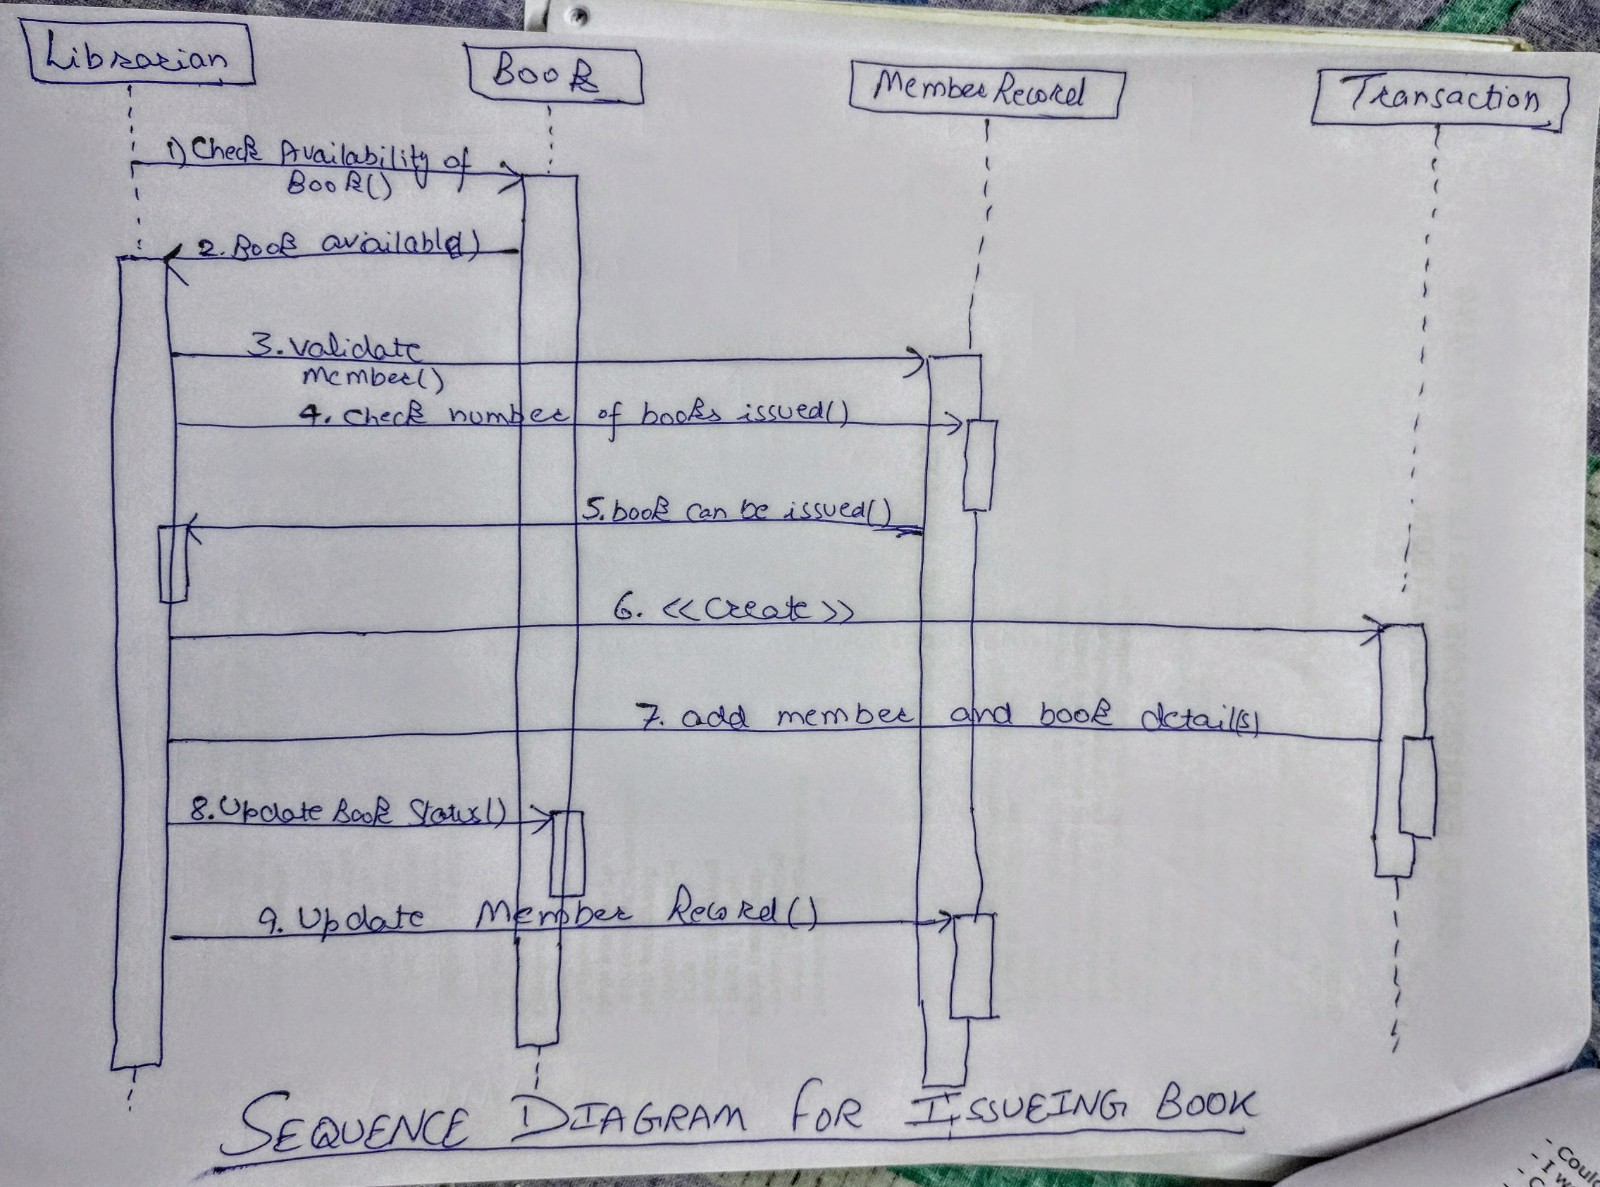 Librarian
Book
Member Record
Transaction
1) Check Availability of
Book()
2. Book available()
3. Validate
member()
4. Check number of books issued()
5. book can be issued()
6. <<Create>>
7. add member and book detail(s)
8. Update Book Status()
9. Update Member Record()
SEQUENCE DIAGRAM FOR ISSUEING BOOK
- Could
- I w